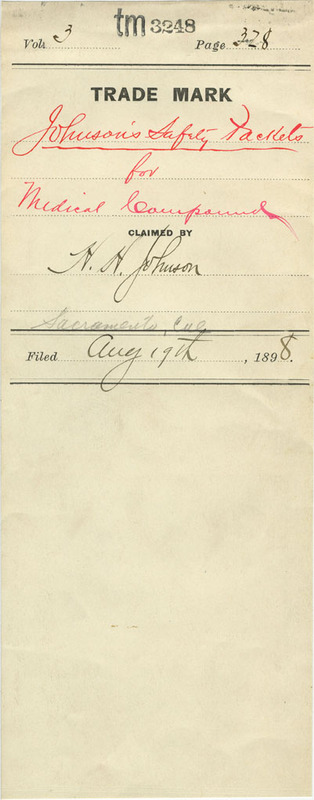 tm 3248
Vol. 3 Page 378
TRADE MARK
Johnson's Safety Packets
for
Medical Compound
CLAIMED BY
H. H. Johnson
Sacramento, Cal
Filed Aug 19th, 1898.